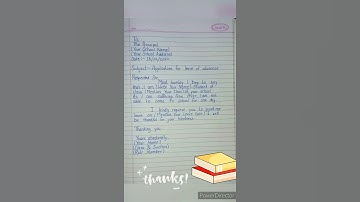 To,
The Principal
[Your School Name]
[Your School Address]
Date:-
Subject:- Application for leave of absence
Respected Sir,
Most humbly I beg to say
that, I am [Write Your Name] Student of
class [Mention Your Class] of your school.
As I am suffering from fever I am not
able to come to school for one day.
I kindly request you to grant me
leave on [Mention Your Leave Date] I will
be thankful for your kindness.
Thanking you
Yours obediently,
[Your Name]
[Class & Section]
[Roll Number]
thanks!
PowerDirector